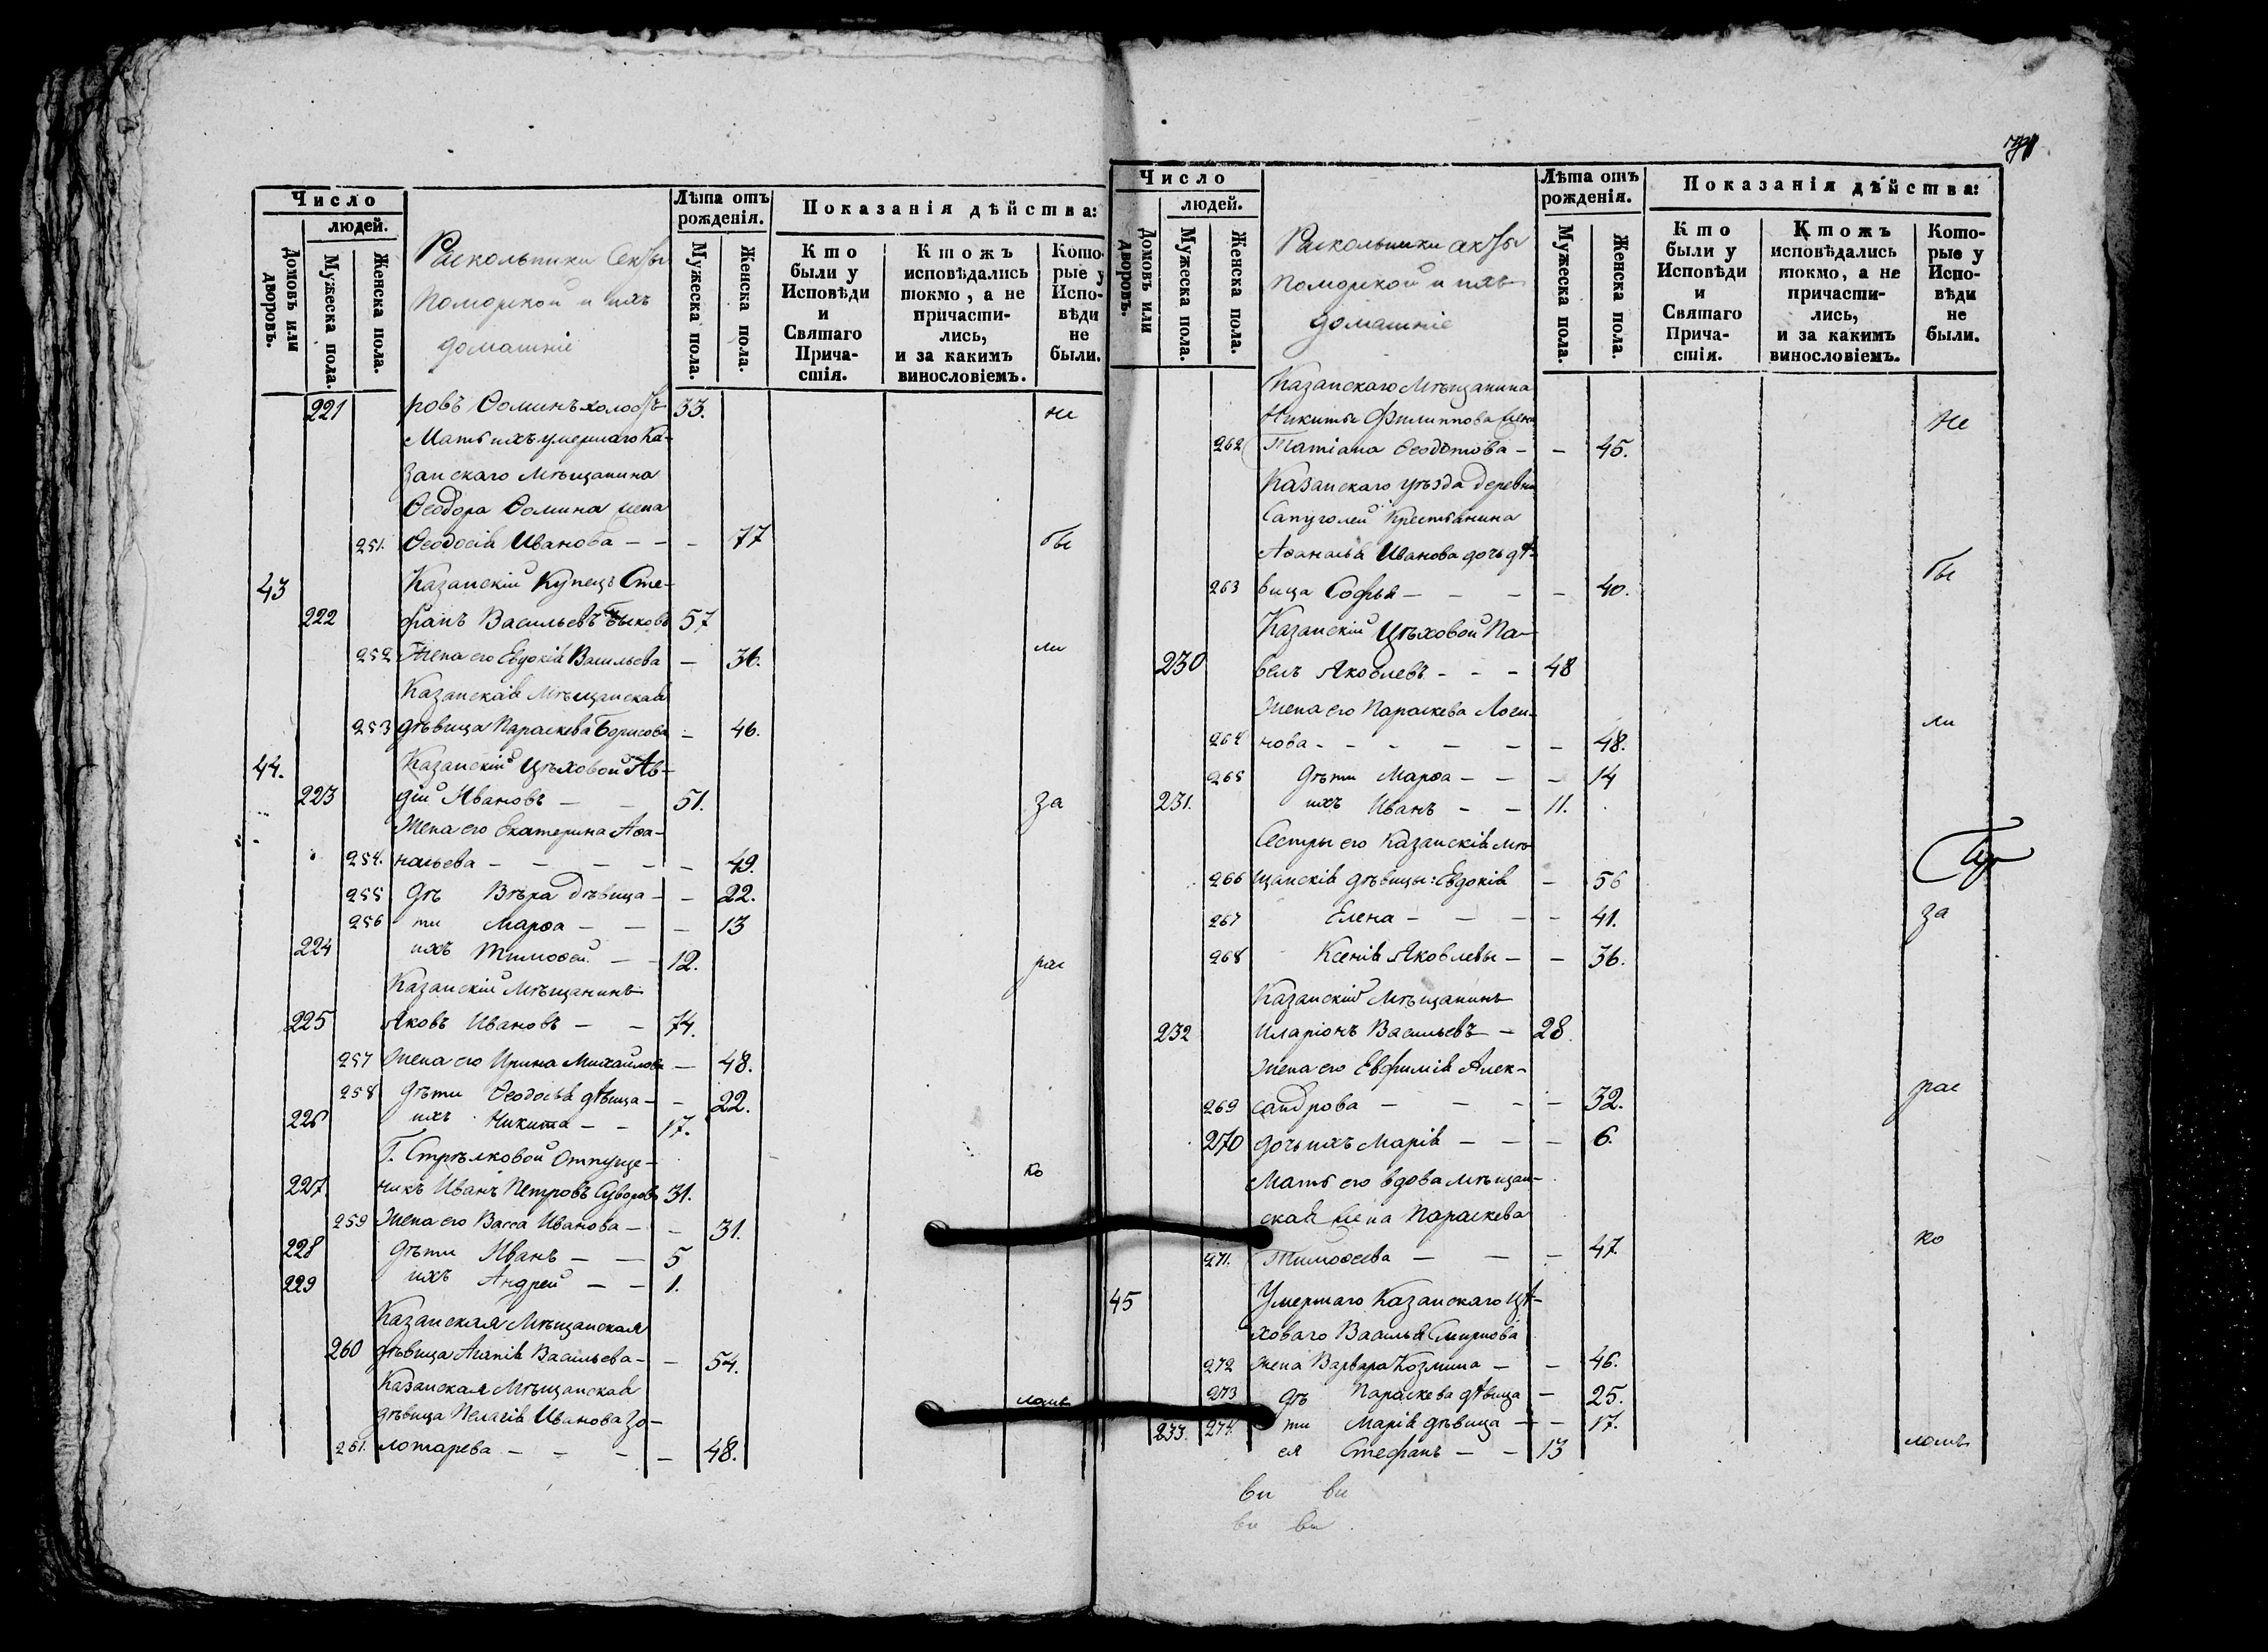 Число
людей.
Домовъ или дворовъ.
Мужеска пола.
Женска пола.
Раскольники секты
поморской и ихъ
домашніе
Лѣта отъ
рожденія.
Мужеска пола.
Женска пола.
Показанія дѣйства:
Кто
были у
Исповѣди
и
Святаго
Прича-
стія.
Ктожъ
исповѣдались
токмо, а не
причасти-
лись,
и за какимъ
винословіемъ.
Кото-
рые у
Испо-
вѣди
не
были.
221 ровъ Ѳоминъ холостъ 33. не
Мать ихъ умершаго Ка-
занскаго Мѣщанина
Ѳеодора Ѳомина жена
251. Ѳеодосія Иванова – – – 77 бы
43 Казанскій Купецъ Сте-
222 фанъ Васильевъ Быковъ 57
252 Жена его Евдокія Васильева – 36. ли
Казанская Мѣщанская
253 дѣвица Параскева Борисова – 46.
44. Казанскій Цѣховой Ав-
223 дій Ивановъ – – 51. за
Жена его Екатерина Аѳа-
254. насьева – – – – – 49.
255 Дѣ Вѣра дѣвица – – 22.
256 ти Марѳа – – – 13
224 ихъ Тимоѳей – – 12. рас
Казанскій Мѣщанинъ
225 Яковъ Ивановъ – – 74.
257 Жена его Ирина Михайлова – 48.
258 Дѣти Ѳеодосья дѣвица – – 22.
226 ихъ Никита – – 17.
Г. Стрѣлковой Отпуще-
227 никъ Иванъ Петровъ Суворовъ 31. ко
259 Жена его Васса Иванова – – 31.
228 Дѣти Иванъ – – 5
229 ихъ Андрей – – 1.
Казанская Мѣщанская
260 дѣвица Агапія Васильева – – 54.
Казанская Мѣщанская
дѣвица Пелагія Иванова Зо- ломъ
261. лотарева – – – – 48.
Число
людей.
Домовъ или дворовъ.
Мужеска пола.
Женска пола.
Раскольники секты
поморской и ихъ
домашніе
Лѣта отъ
рожденія.
Мужеска пола.
Женска пола.
Показанія дѣйства:
Кто
были у
Исповѣди
и
Святаго
Прича-
стія.
Ктожъ
исповѣдались
токмо, а не
причасти-
лись,
и за какимъ
винословіемъ.
Кото-
рые у
Испо-
вѣди
не
были.
Казанскаго Мѣщанина
Никиты Филиппова жена не
262 Татіана Ѳеодотова – – 45.
Казанскаго уѣзда деревни
Сапуголей Крестьянина
Аѳанасья Иванова дочь дѣ-
263 вица Софья – – – – 40. бы
Казанскій Цѣховой Па-
230 велъ Яковлевъ – – – 48
Жена его Параскева Логи-
264 нова – – – – – – 48. ли
265 Дѣти Марѳа – – – 14
231. ихъ Иванъ – – 11.
Сестры его Казанскія мѣ-
266 щанскія дѣвицы: Евдокія – 56
267 Елена – – – – 41. за
268 Ксенія Яковлевы – – 36.
Казанскій Мѣщанинъ
232 Иларіонъ Васильевъ – 28.
Жена его Евфимія Алек-
269 сандрова – – – – 32. рас
270 дочь ихъ Марія – – – 6.
Мать его вдова мѣщан-
ская жена Параскева
271. Тимоѳеева – – – 47. ко
45 Умершаго Казанскаго цѣ-
ховаго Василья Смирнова
272 жена Варвара Козмина – – 46.
273 дѣ Параскева дѣвица – 25.
274. ти Марія дѣвица – – 17.
233. ея Стефанъ – – 13 ломъ
ви ви
ви ви